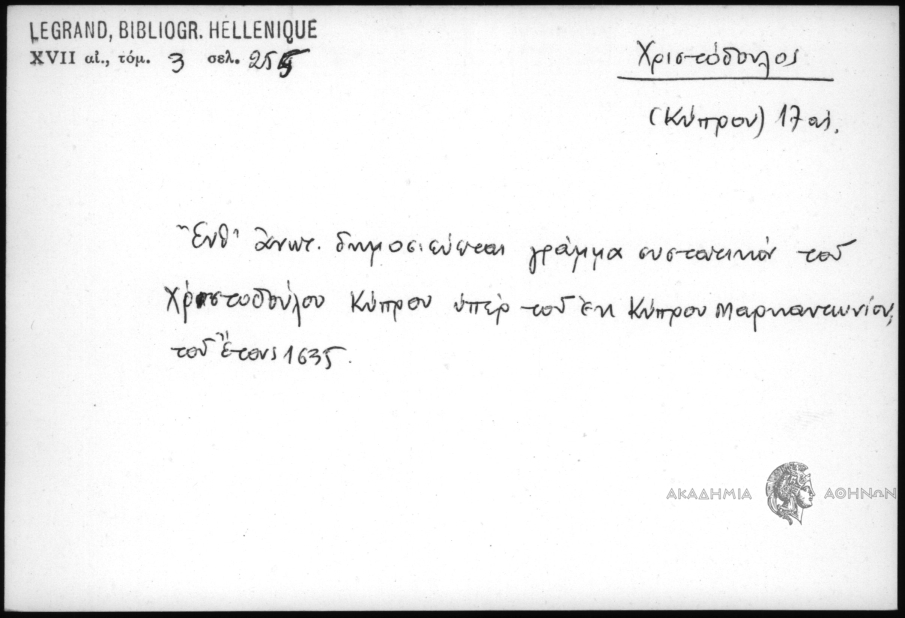 LEGRAND, BIBLIOGR. HELLENIQUE
XVII αἰ., τόμ. 3 σελ. 255
Χριστόδουλος
(Κύπρου) 17 αἰ.
Ἔνθ' ἀνωτ. δημοσιεύεται γράμμα συστατικόν τοῦ
Χριστοδούλου Κύπρου ὑπέρ τοῦ ἐκ Κύπρου Μαρκαντωνίου,
τοῦ ἔτους 1635.
ΑΚΑΔΗΜΙΑ ΑΘΗΝΩΝ